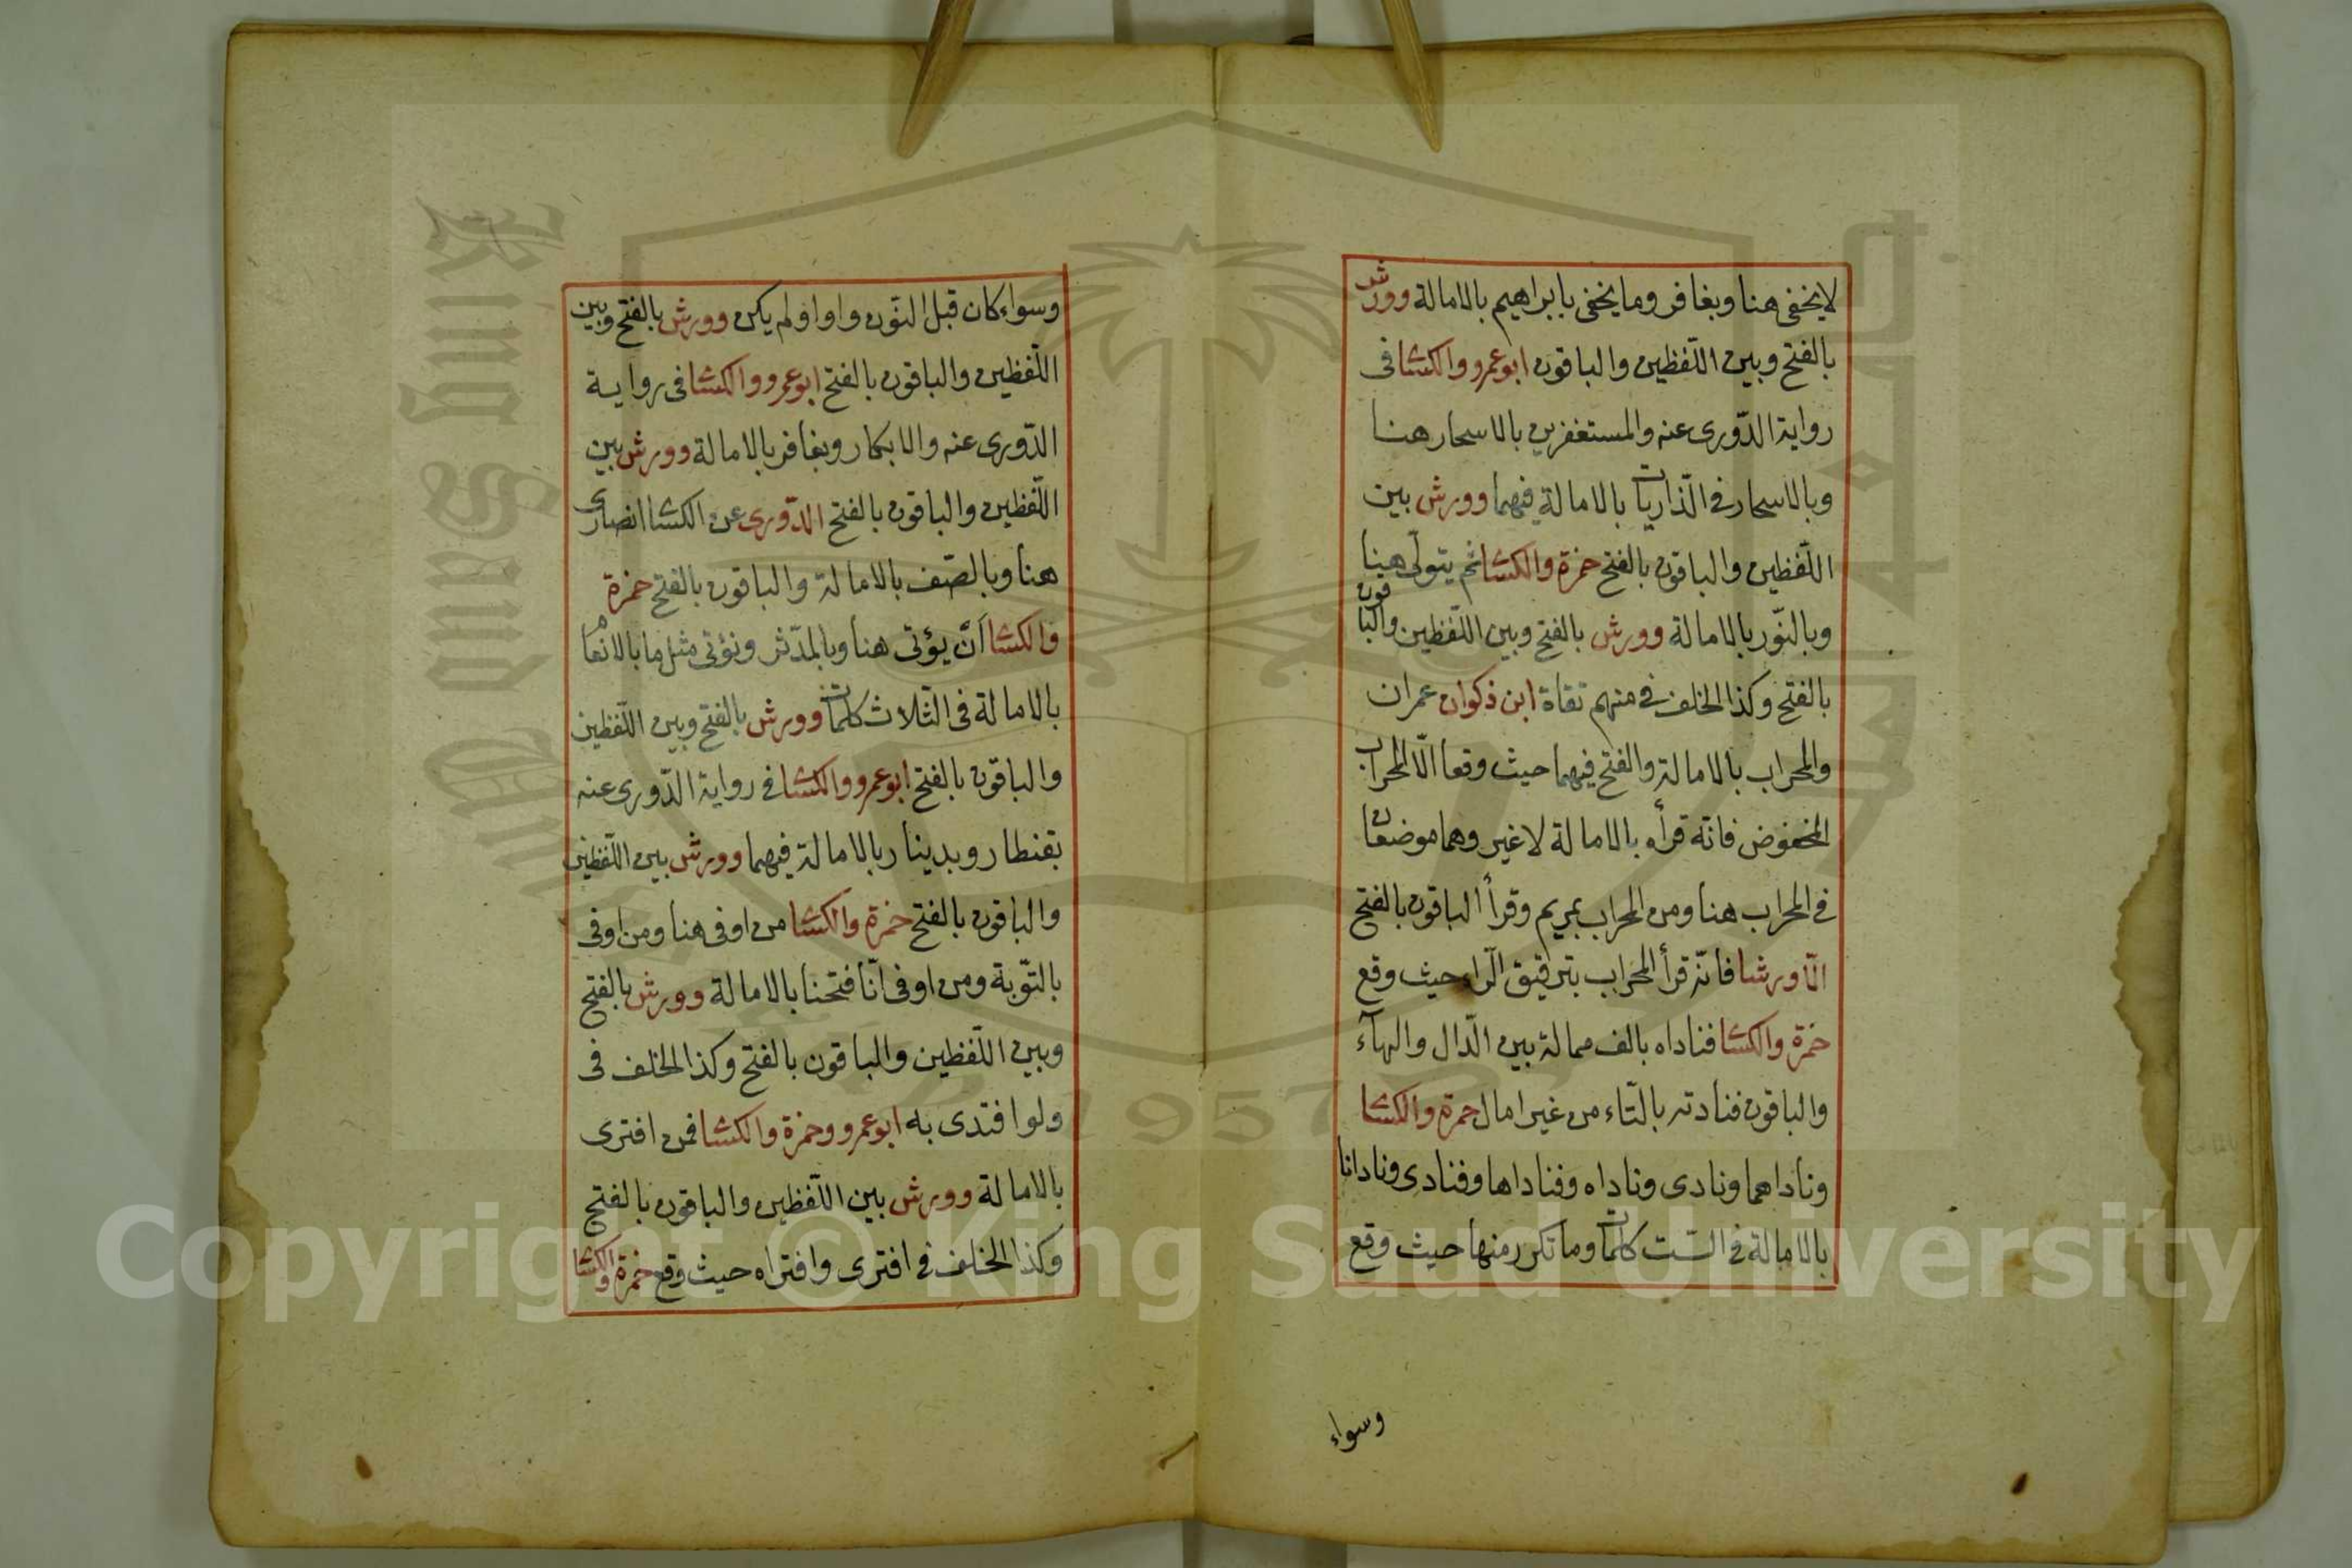 لا يخفى هنا وبغافر وما يخفى بابراهيم بالامالة وورش
بالفتح وبين اللّفظين والباقون ابوعمرو والكسا فى
رواية الدّورى عنه والمستغفرين بالاسحار هنا
وبالاسحار فى الّذاريات بالامالة فيهما وورش بين
اللّفظين والباقون بالفتح حمزة والكسا ثم يتولّى هنا
وبالنّور بالامالة وورش بالفتح وبين اللّفظين والباقون
بالفتح وكذا الخلف فى منهم تقاة ابن ذكوان عمران
والمحراب بالامالة والفتح فيهما حيث وقعا الّا المحراب
المخفوض فانّه قرأه بالامالة لا غير وهما موضعان
فى المحراب هنا ومن المحراب بمريم وقرأ الباقون بالفتح
الّا ورشا فانّه قرأ المحراب بترقيق الرّاء حيث وقع
حمزة والكسا فناداه بالف ممالة بين الدّال والهآء
والباقون فنادته بالتّاء من غير امال حمزة والكسا
وناداهما ونادى وناداه وفناداها وفنادى ونادانا
بالامالة فى السّت كلمات وما تكرر منها حيث وقع
وسواء
وسواء كان قبل النّون واوا او لم يكن وورش بالفتح وبين
اللّفظين والباقون بالفتح ابوعمرو والكسا فى رواية
الدّورى عنه والابكار وبغافر بالامالة وورش بين
اللّفظين والباقون بالفتح الدّورى عن الكسا انصارى
هنا وبالصّف بالامالة والباقون بالفتح حمزة
والكسا أنّ يؤتى هنا وبالمدّثر ونؤتى مثل ما بالانعام
بالامالة فى الثّلاث كلمات وورش بالفتح وبين اللّفظين
والباقون بالفتح ابوعمرو والكسا فى رواية الدّورى عنه
بقنطار وبدينار بالامالة فيهما وورش بين اللّفظين
والباقون بالفتح حمزة والكسا من اوفى هنا ومن اوفى
بالتّوبة ومن اوفى انّا فتحنا بالامالة وورش بالفتح
وبين اللّفظين والباقون بالفتح وكذا الخلف فى
ولوا فتدى به ابوعمرو وحمزة والكسا فمن افترى
بالامالة وورش بين اللّفظين والباقون بالفتح
وكذا الخلف فى افترى وافتراه حيث وقع حمزة والكسا
Copyright © King Saud University
1957